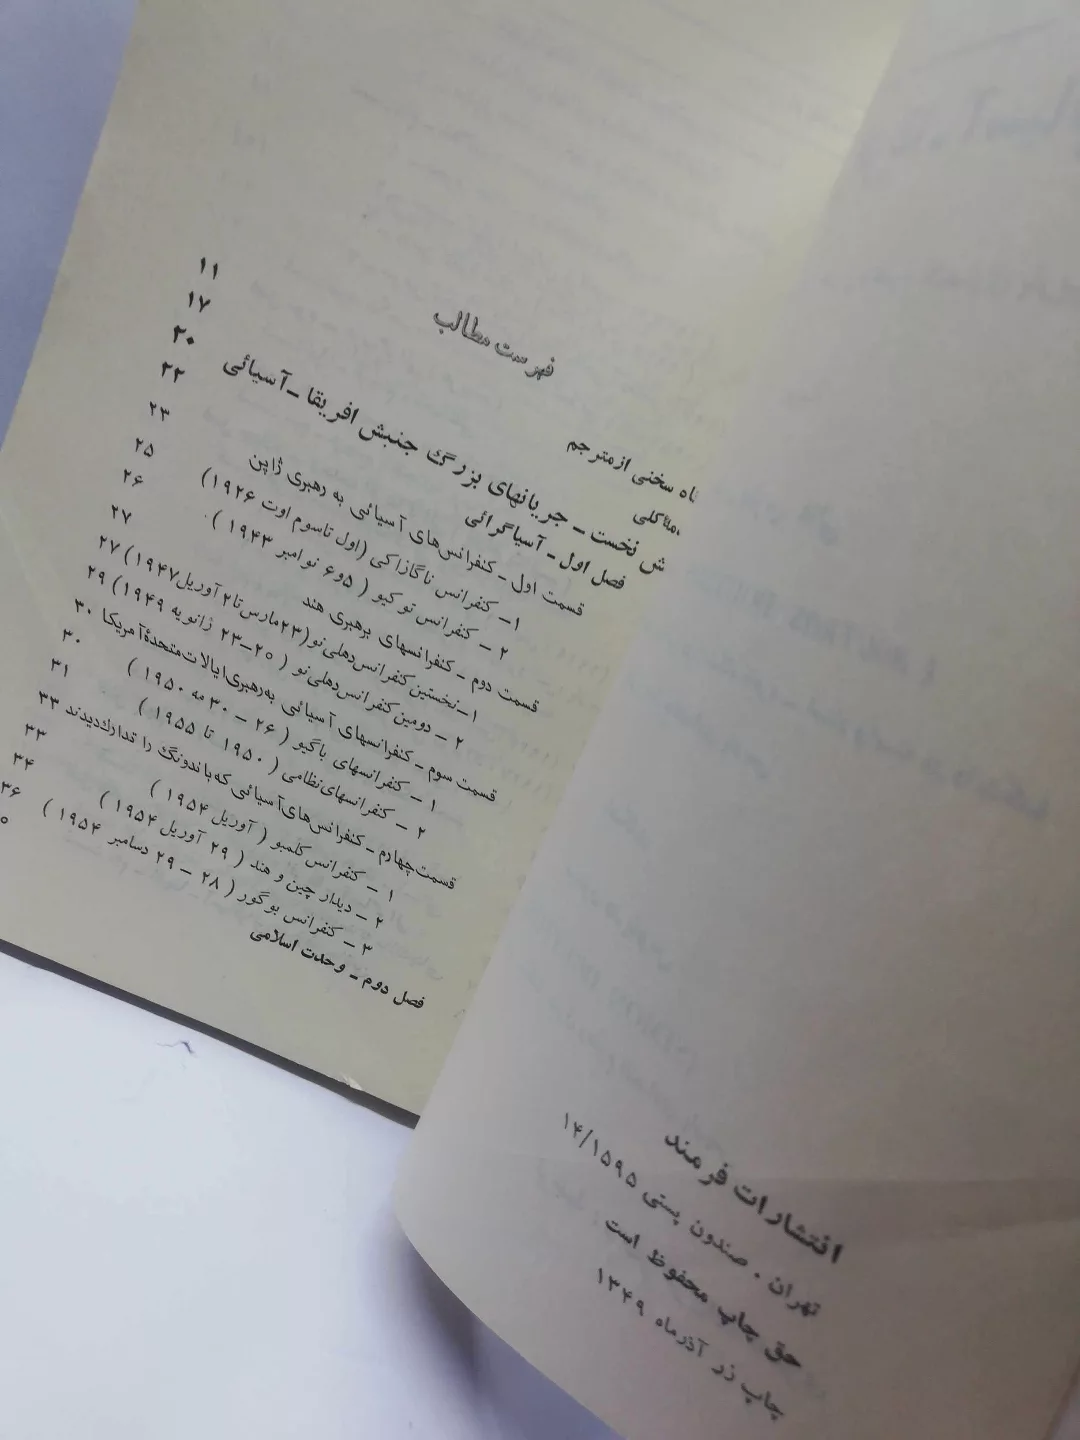 فهرست مطالب
سخنی از مترجم ۱۱
۱۷
نخست ــ جریانهای بزرگ جنبش افریقا ــ آسیائی ۲۰
فصل اول ــ آسیاگرائی ۲۲
قسمت اول ــ کنفرانس‌های آسیائی به رهبری ژاپن ۲۳
۱ــ کنفرانس ناگازاکی (اول تاسوم اوت ۱۹۲۶) ۲۵
۲ ــ کنفرانس توکیو ( ۵و۶ نوامبر ۱۹۴۳ ) ۲۶
قسمت دوم ــ کنفرانسهای برهبری هند ۲۷
۱ــ نخستین کنفرانس‌دهلی‌نو (۲۳مارس‌تا۲ آوریل۱۹۴۷) ۲۷
۲ ــ دومین کنفرانس‌دهلی‌نو ( ۲۰ــ۲۳ ژانویه ۱۹۴۹) ۲۹
قسمت سوم ــ کنفرانسهای آسیائی به‌رهبری‌ایالات‌متحدهٔ‌آمریکا ۳۰
۱ ــ کنفرانسهای باگیو ( ۲۶ ــ ۳۰ مه ۱۹۵۰ ) ۳۰
۲ ــ کنفرانسهای‌نظامی ( ۱۹۵۰ تا ۱۹۵۵ ) ۳۱
قسمت‌چهارم ــ کنفرانس‌های‌آسیائی که‌باندونگ را تدارك‌دیدند ۳۳
۱ ــ کنفرانس کلمبو ( آوریل ۱۹۵۴ ) ۳۳
۲ ــ دیدار چین و هند ( ۲۹ آوریل ۱۹۵۴ ) ۳۴
۳ ــ کنفرانس بوگور ( ۲۸ ــ ۲۹ دسامبر ۱۹۵۴ ) ۳۶
فصل دوم ــ وحدت اسلامی
انتشارات فرمند
تهران . صندون پستی ۱۴/۱۵۹۵
حق چاپ محفوظ است
چاپ در آذرماه ۱۳۴۹